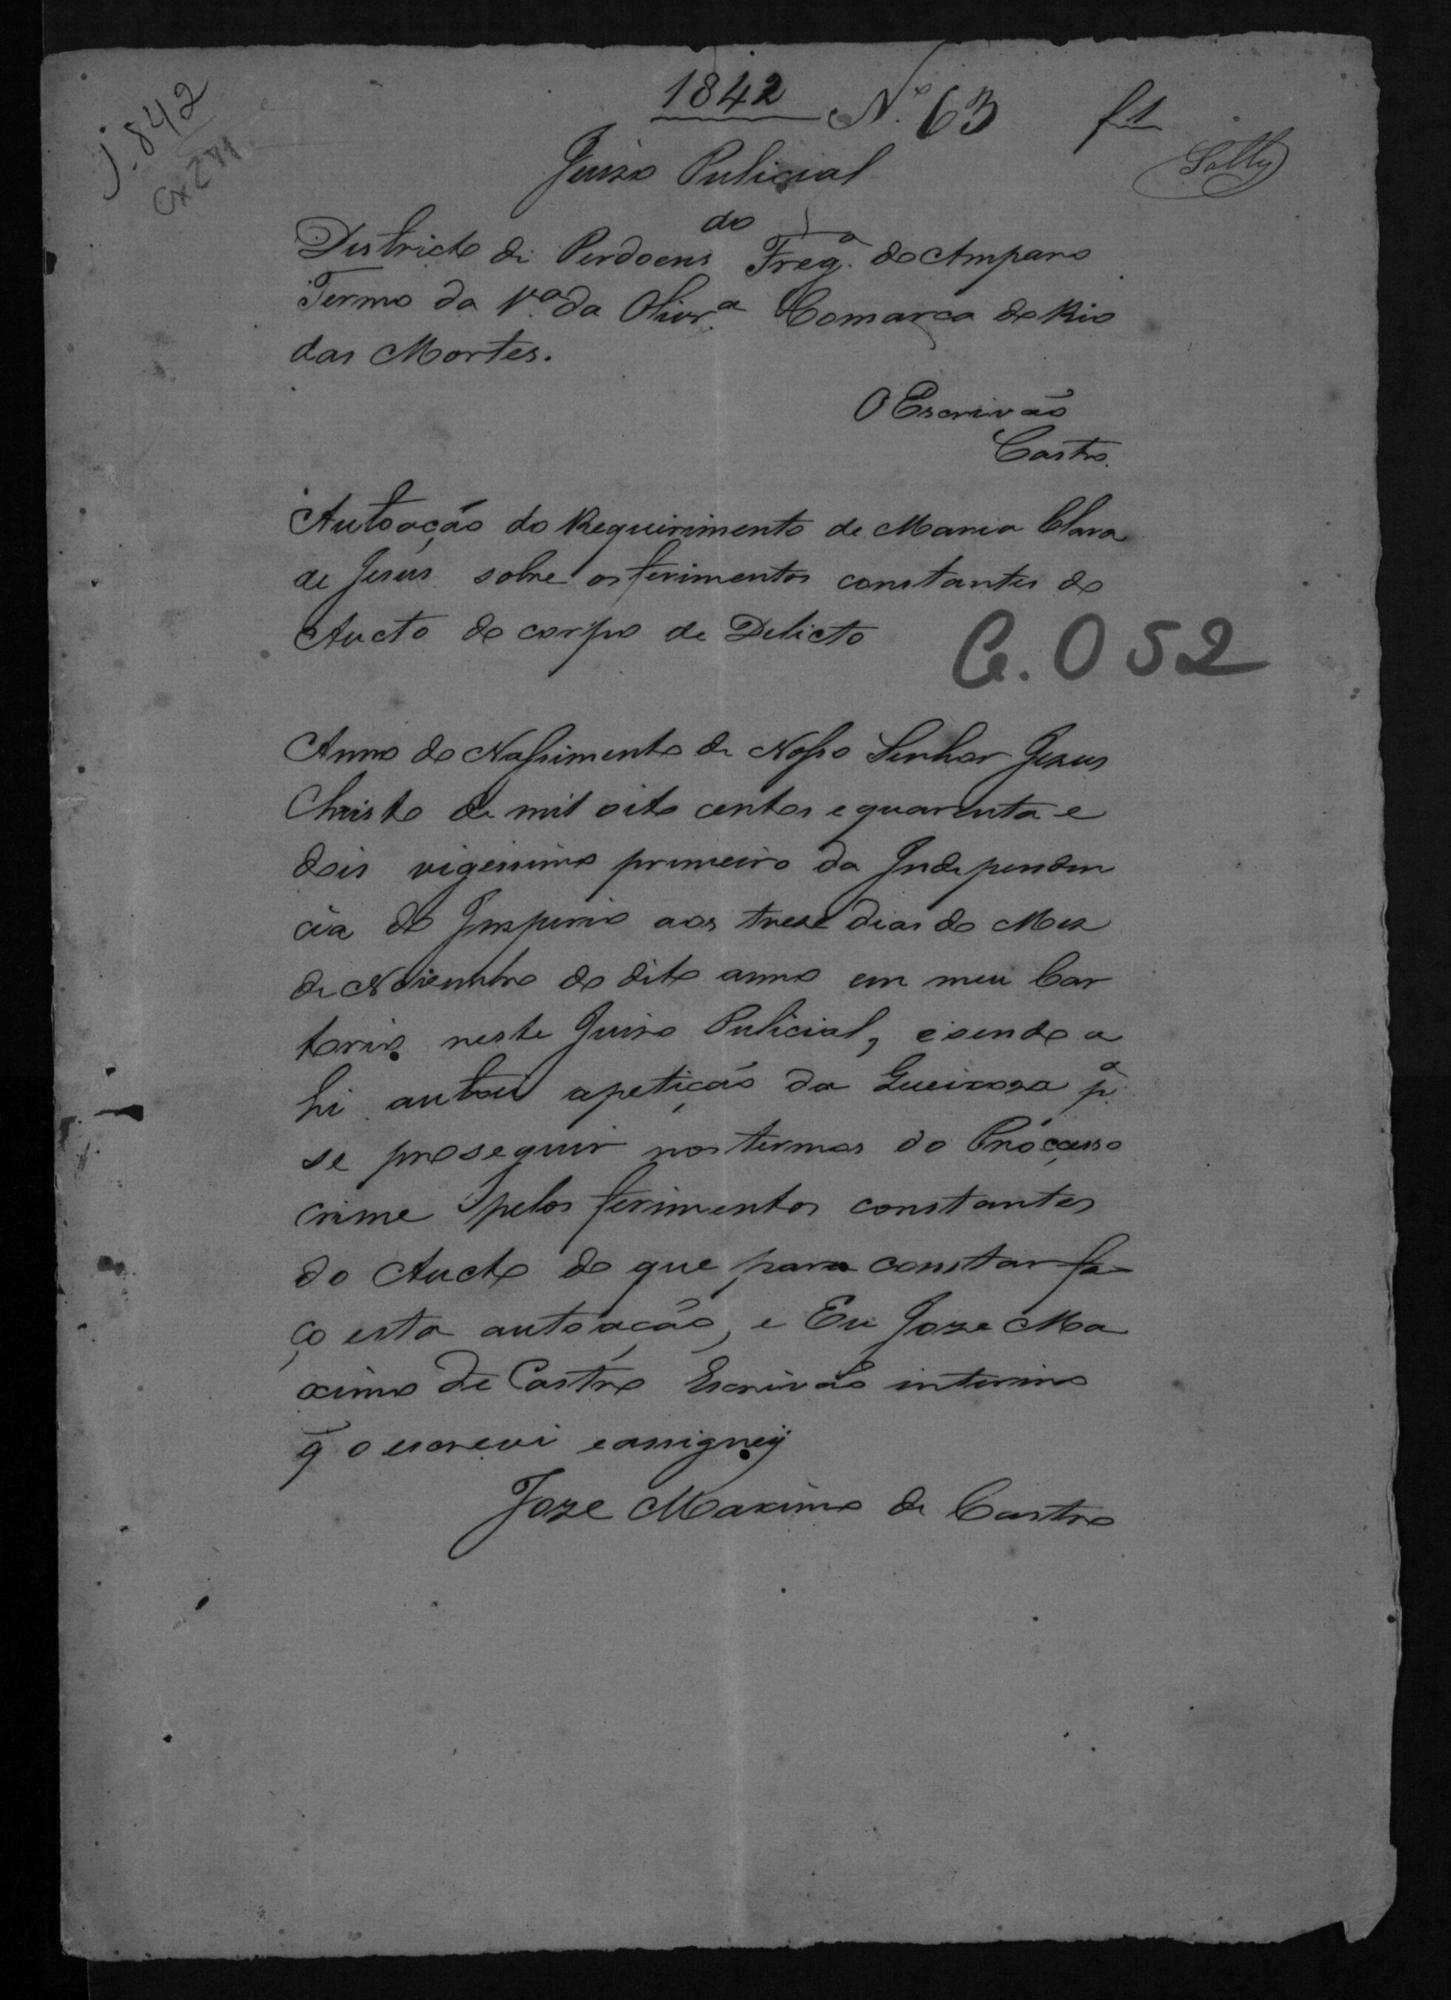 1842 Nº 63 f1
J-842
Cx 271
Juizo Pulicial
do
Districto de Perdoens Fregª do Amparo
Termo da Vª da Olivrª Comarca do Rio
das Mortes.
O Escrivão
Castro.
Autoação do Requirimento de Maria Clara
de Jesus sobre os ferimentos constantes do
Aucto do corpo de Delicto
G.052
Anno do Nassimento de Nosso Senhor Jezus
Christo de mil oito centos e quarenta e
dois vigessimo primeiro da Independen
cia do Imperio aos treze dias do Mez
de Novembro do dito anno em meu Car
torio neste Juizo Pulicial, e sendo a
hi autoei apetição da Queixoza pª
se proseguir nos termos do Processo
crime pelos ferimentos constantes
do Aucto do que para constar fa-
ço esta autoação, e Eu Joze Ma
ximo de Castro Escrivão interino
q̃ o escrevi e assigney
Joze Maximo de Castro